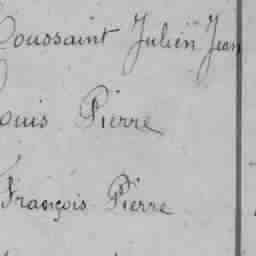 Toussaint Julien Jean
Louis Pierre
François Pierre